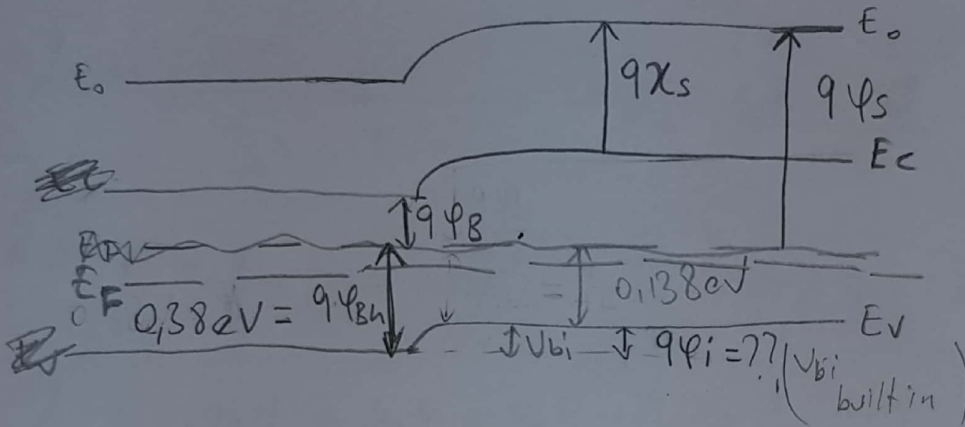 E₀
E₀
qχs
qφs
Ec
qφB
E_F
0,138eV
0,38eV = qφBh
Ev
Vbi
qφi = ?? (Vbi
built in )